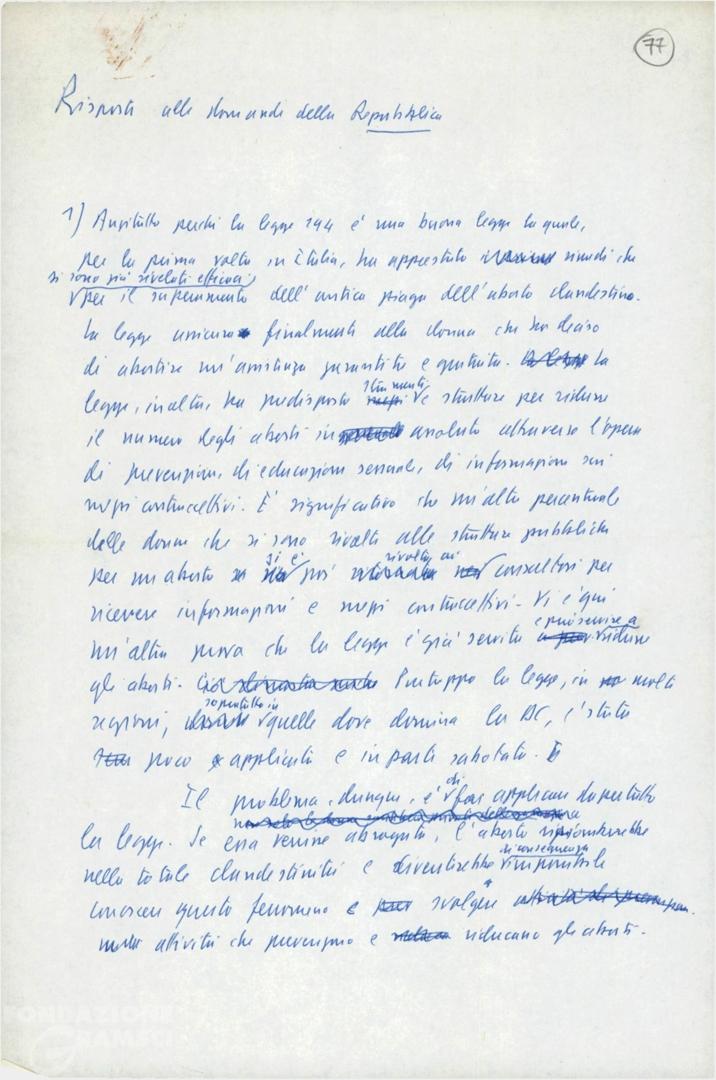 77
Risposte alle domande della Repubblica
1) Anzitutto perché la legge 194 è una buona legge la quale,
per la prima volta in Italia, ha apprestato rimedi che
si sono già rivelati efficaci
per il superamento dell'antica piaga dell'aborto clandestino.
La legge assicura finalmente alla donna che ha deciso
di abortire un'assistenza garantita e gratuita. La legge La
legge, inoltre, ha predisposto mezzi strumenti e strutture per ridurre
il numero degli aborti in assoluto attraverso l'opera
di prevenzione, di educazione sessuale, di informazione sui
mezzi contraccettivi. È significativo che un'alta percentuale
delle donne che si sono rivolte alle strutture pubbliche
per un aborto si è poi rivolta ai consultori per
ricevere informazioni e mezzi contraccettivi. Vi è qui
un'altra prova che la legge è già servita e può servire a ridurre
gli aborti. Purtroppo la legge, in molte
regioni, soprattutto in quelle dove domina la DC, è stata
poco applicata e in parte sabotata.
Il problema, dunque, è di far applicare dappertutto
la legge. Se essa venisse abrogata, l'aborto ripiomberebbe
nella totale clandestinità e diventerebbe di conseguenza impossibile
conoscere questo fenomeno e svolgere
attività che prevengano e riducano gli aborti.
FONDAZIONE
GRAMSCI